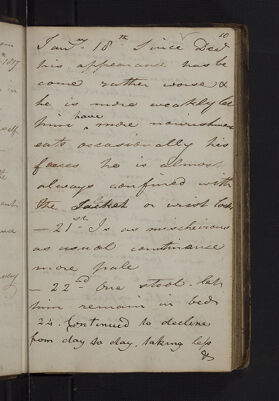 50
Jany. 18th Since Decr
his appearance has be
come rather worse &
he is more weakly let
him have more nourishment
eats occasionally his
faeces he is almost
always confined with
the Jacket or wrist locks
— 21st Is as mischievous
as usual continuance
more pale
— 22nd One stool. let
him remain in bed
24. Continued to decline
from day to day, taking less
&